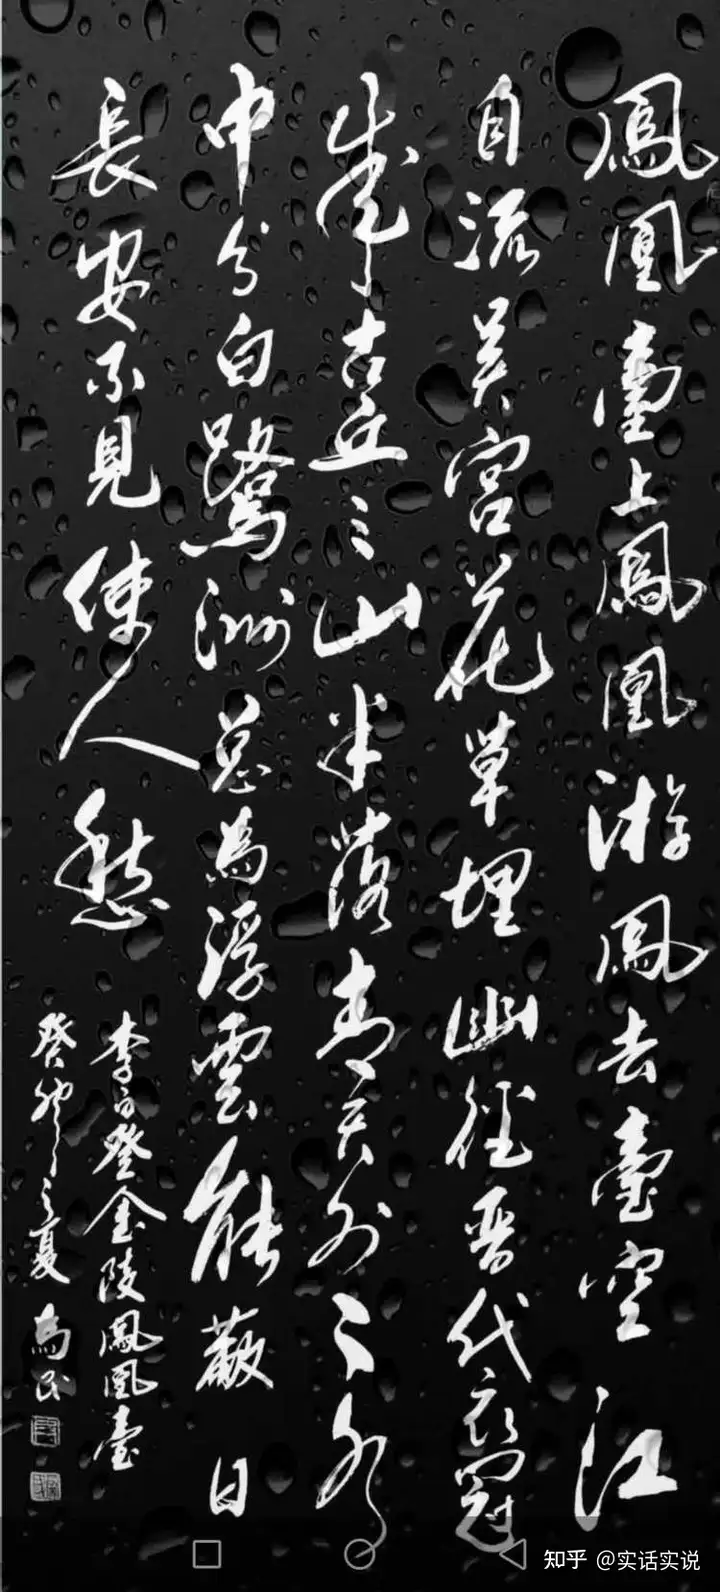 鳳凰臺上鳳凰游鳳去臺空江
自流吴宫花草埋幽徑晋代衣冠
成古丘三山半落青天外二水
中分白鷺洲总為浮雲能蔽日
長安不見使人愁
李白登金陵鳳凰臺
癸之夏為民
知乎 @实话实说